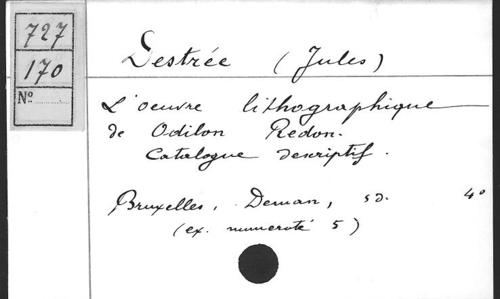 727
170
Nº
Destrée (Jules)
L'oeuvre lithographique
de Odilon Redon.
Catalogue descriptif.
Bruxelles, Deman, sd. 4º
(ex. numeroté 5)